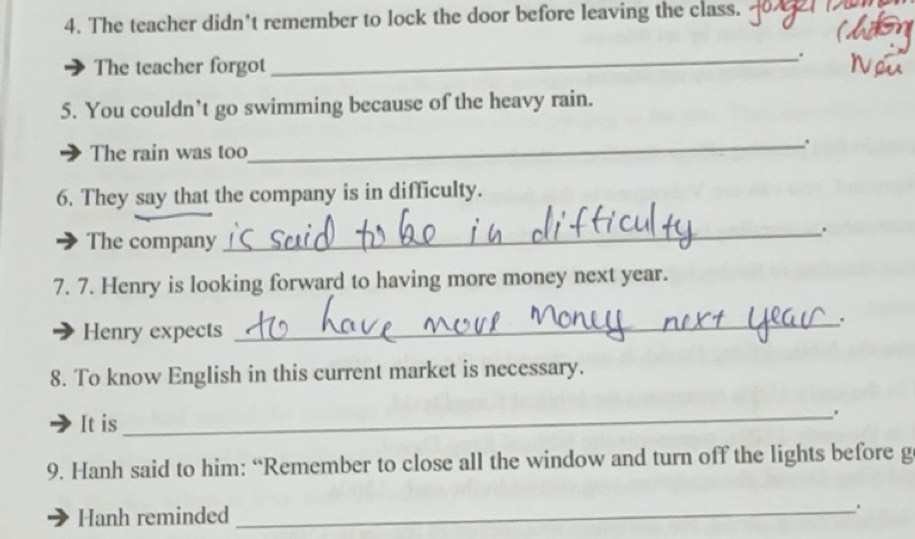 4. The teacher didn't remember to lock the door before leaving the class. forget
➔ The teacher forgot ____________.
5. You couldn't go swimming because of the heavy rain.
➔ The rain was too____________.
6. They say that the company is in difficulty.
➔ The company is said to be in difficulty.
7. 7. Henry is looking forward to having more money next year.
➔ Henry expects to have more money next year.
8. To know English in this current market is necessary.
➔ It is ____________.
9. Hanh said to him: “Remember to close all the window and turn off the lights before g
➔ Hanh reminded ____________.